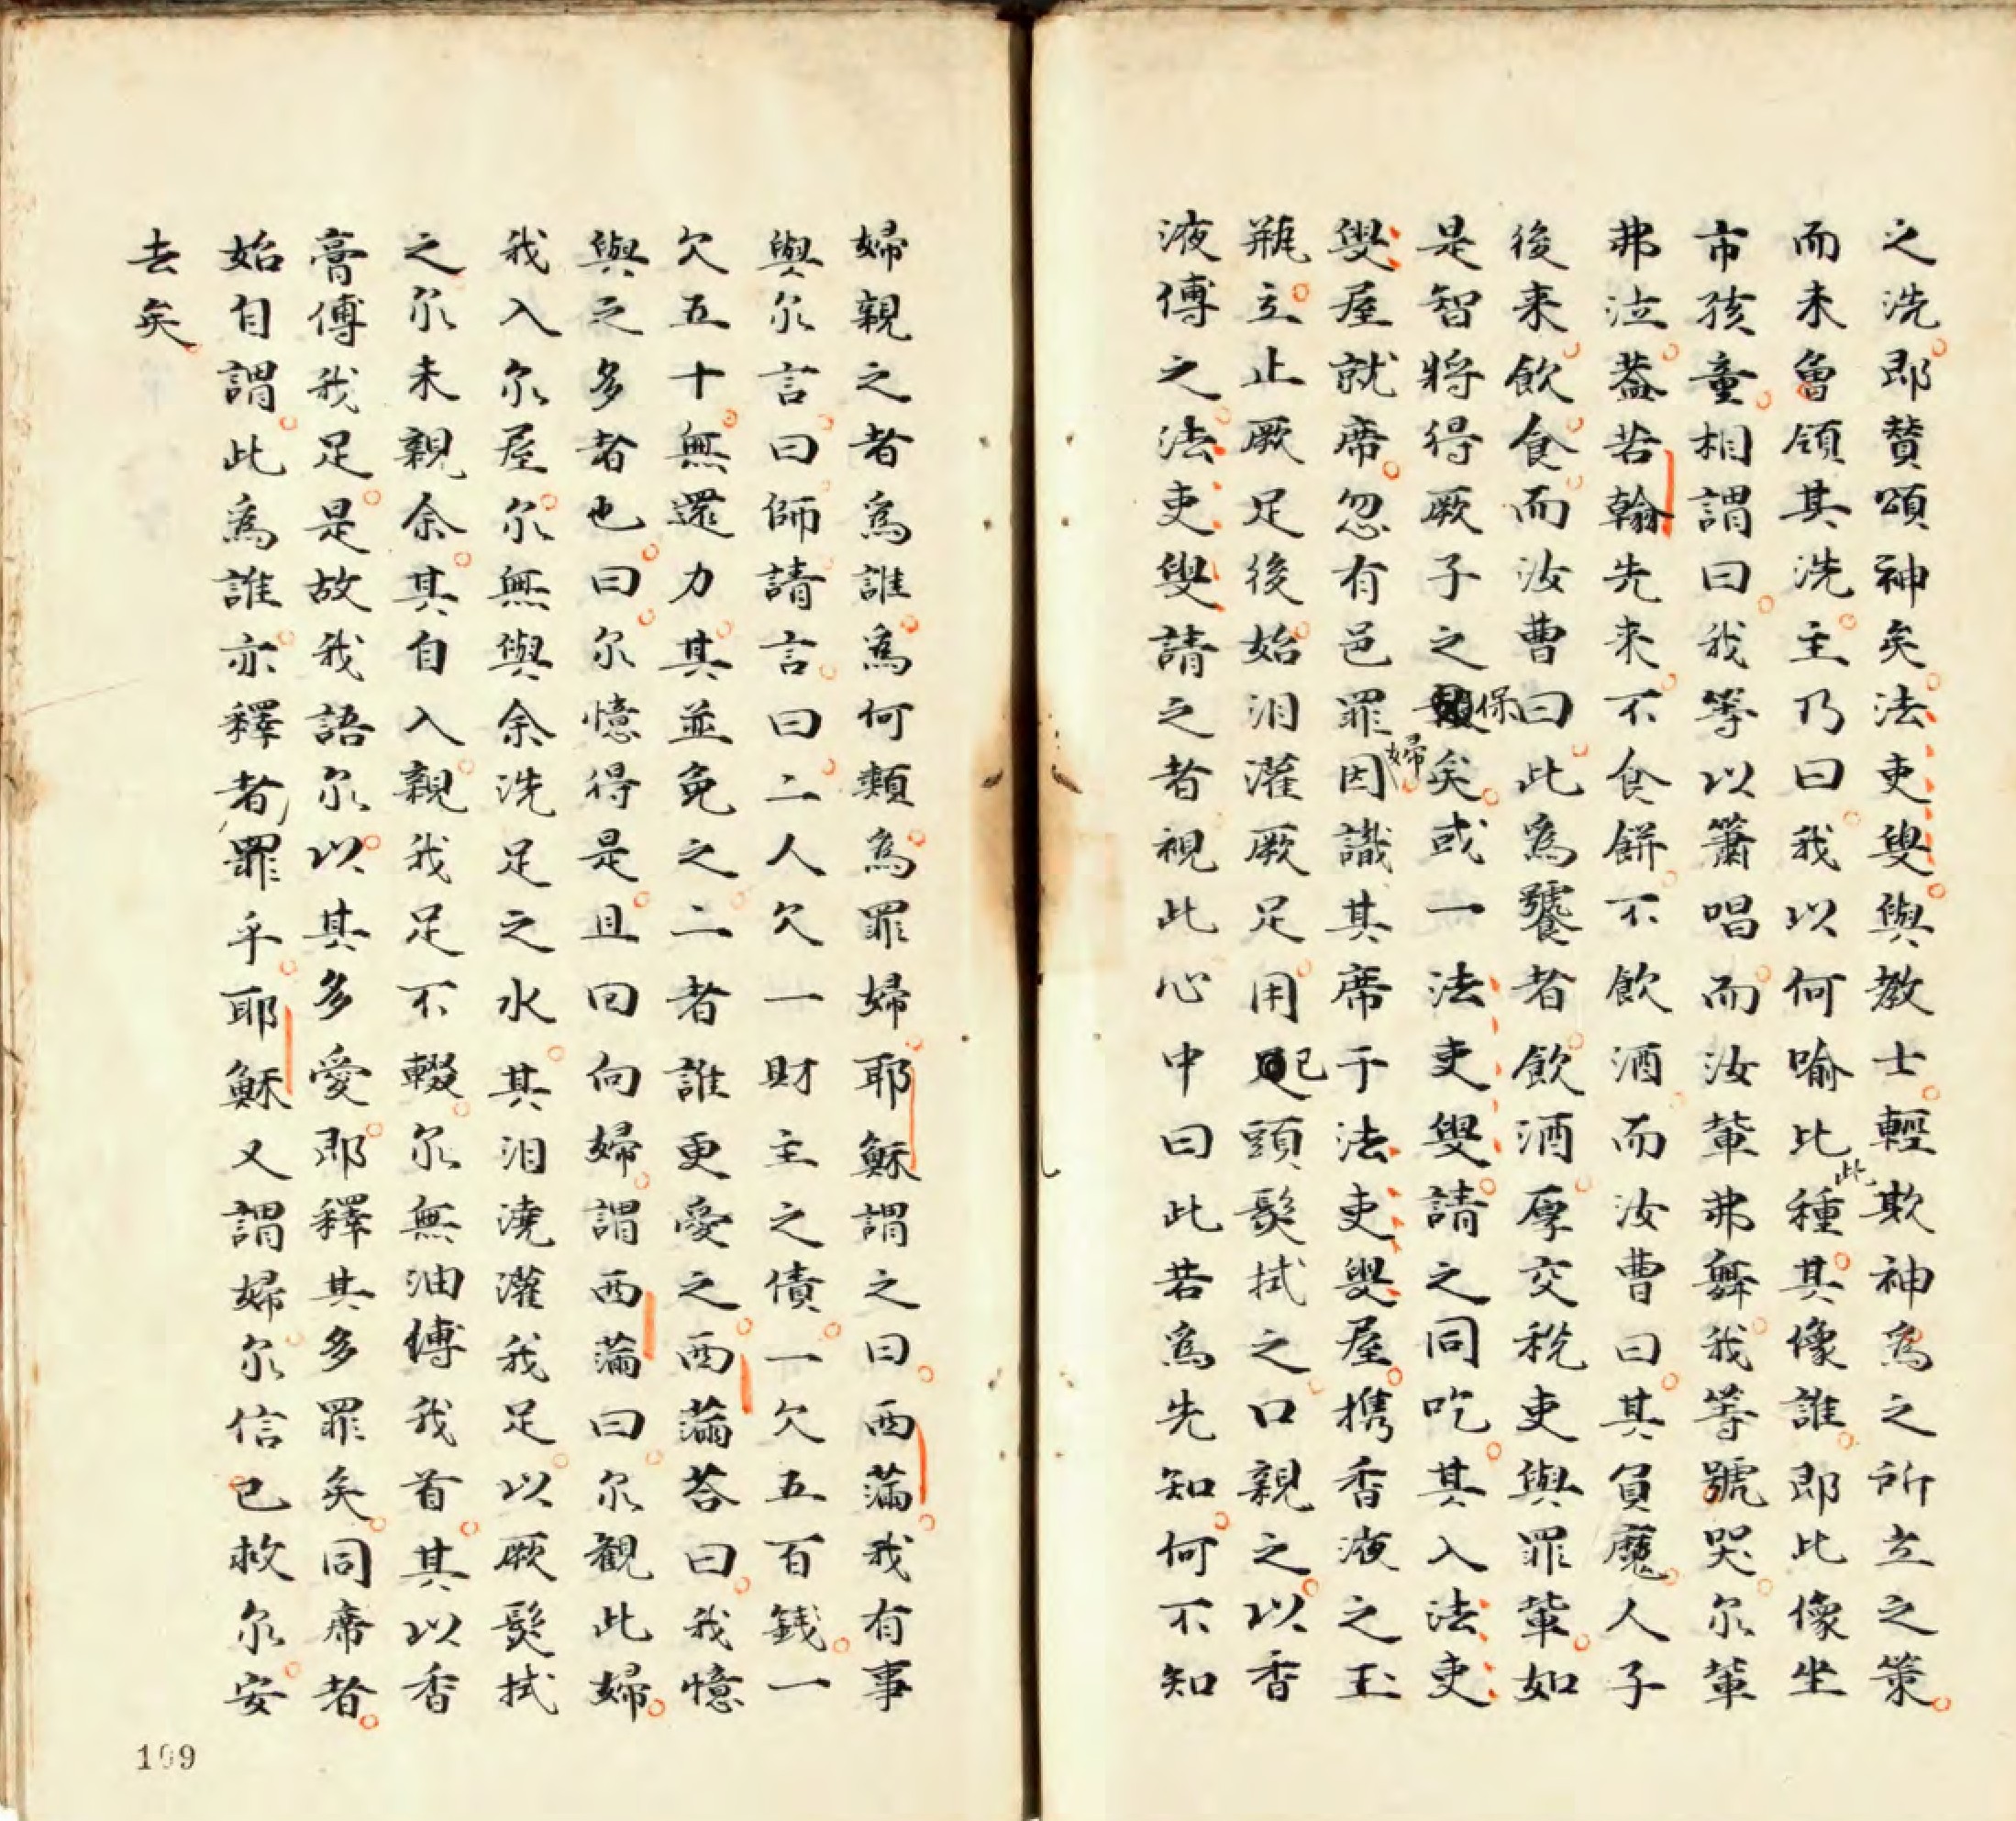 之洗即賛頌神矣法吏叟與教士輕欺神為之所立之策
而未魯領其洗主乃曰我以何喻比此種其像誰即此像坐
市孩童相謂曰我等以簫唱而汝輩弗舞我等號哭尔輩
弗泣蓋若翰先来不食餅不飲酒而汝曹曰其負魔人子
後来飲食而汝曹曰此為饕者飲酒厚交税吏與罪輩如
是智将得厥子之保矣或一法吏叟請之同吃其入法吏
叟屋就席忽有邑罪婦因識其席于法吏叟屋携香液之玉
瓶立止厥足後始泪灌厥足用己頭髮拭之口親之以香
液傅之法吏叟請之者視此心中曰此若為先知何不知
婦親之者為誰為何類為罪婦耶穌謂之曰西滿我有事
與尔言曰師請言曰二人欠一財主之債一欠五百銭一
欠五十無還力其並免之二者誰更愛之西滿荅曰我憶
與之多者也曰尔憶得是且曰向婦謂西滿曰尔觀此婦
我入尔屋尔無與余洗足之水其泪澆灌我足以厥髮拭
之尔未親余其自入親我足不輟尔無油傅我首其以香
膏傅我足是故我語尔以其多愛即釋其多罪矣同席者
始自謂此為誰亦釋者罪乎耶穌又謂婦尔信已救尔安
去矣
109